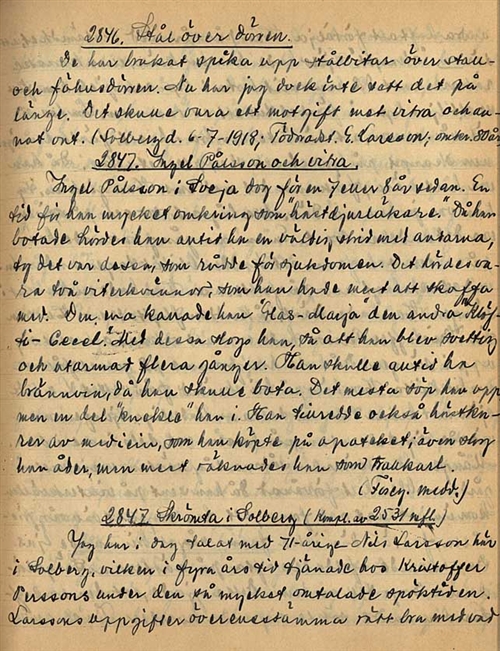 2846. Stål över dörren.
De har brukat spika upp stålbitar över stall-
och fähusdörren. Nu har jag dock inte sett det på
länge. Det skulle vara ett motgift mot vitra och an-
nat ont. (Solberg d. 6-7-1918; Födorådst. E. Larsson, omkr. 80 år
2847. Ingel Pålsson och vitra.
Ingel Pålsson i dog för en 7 eller 8 år sedan. En
tid for han mycket omkring som "hästdjurläkare." Då han
botade hördes han alltid ha en väldig strid med andarna,
ty det var dessa, som rådde för sjukdomen. Det hördes va-
ra två viterkvinnor, som han hade mest att skaffa
med. Den ena kallade han "Glas-Maja" den andra
Med dessa slogs han, så att han blev svettig
och utarmad flera gånger. Han skulle alltid ha
brännvin, då han skulle bota. Det mesta söp han upp
men en del han i. Han tillredde också hästku-
rer av medicin, som han köpte på apoteket; även slog
han åder, men mest räknades han som trollkarl.
medd.)
2847. Skrömta i Solberg (Kompl. av 2531 m.fl.)
Jag har i dag talat med 71-årige Nils Larsson här
i Solberg, vilken i fyra års tid tjänade hos Kristoffer
Perssons under den så mycket omtalade spöktiden.
Larssons uppgifter överensstämma rätt bra med vad